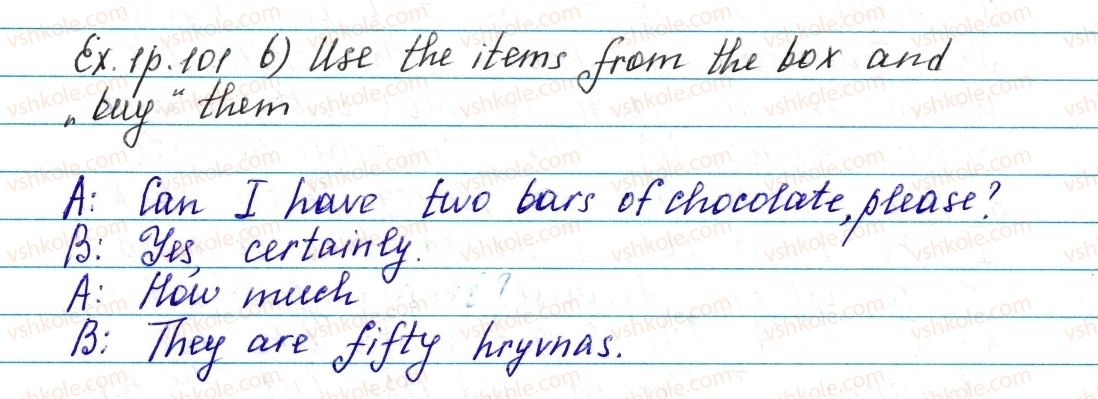 Ex. 1p. 101 b) Use the items from the box and
„buy“ them
A: Can I have two bars of chocolate, please?
B: Yes, certainly.
A: How much
B: They are fifty hryvnas.